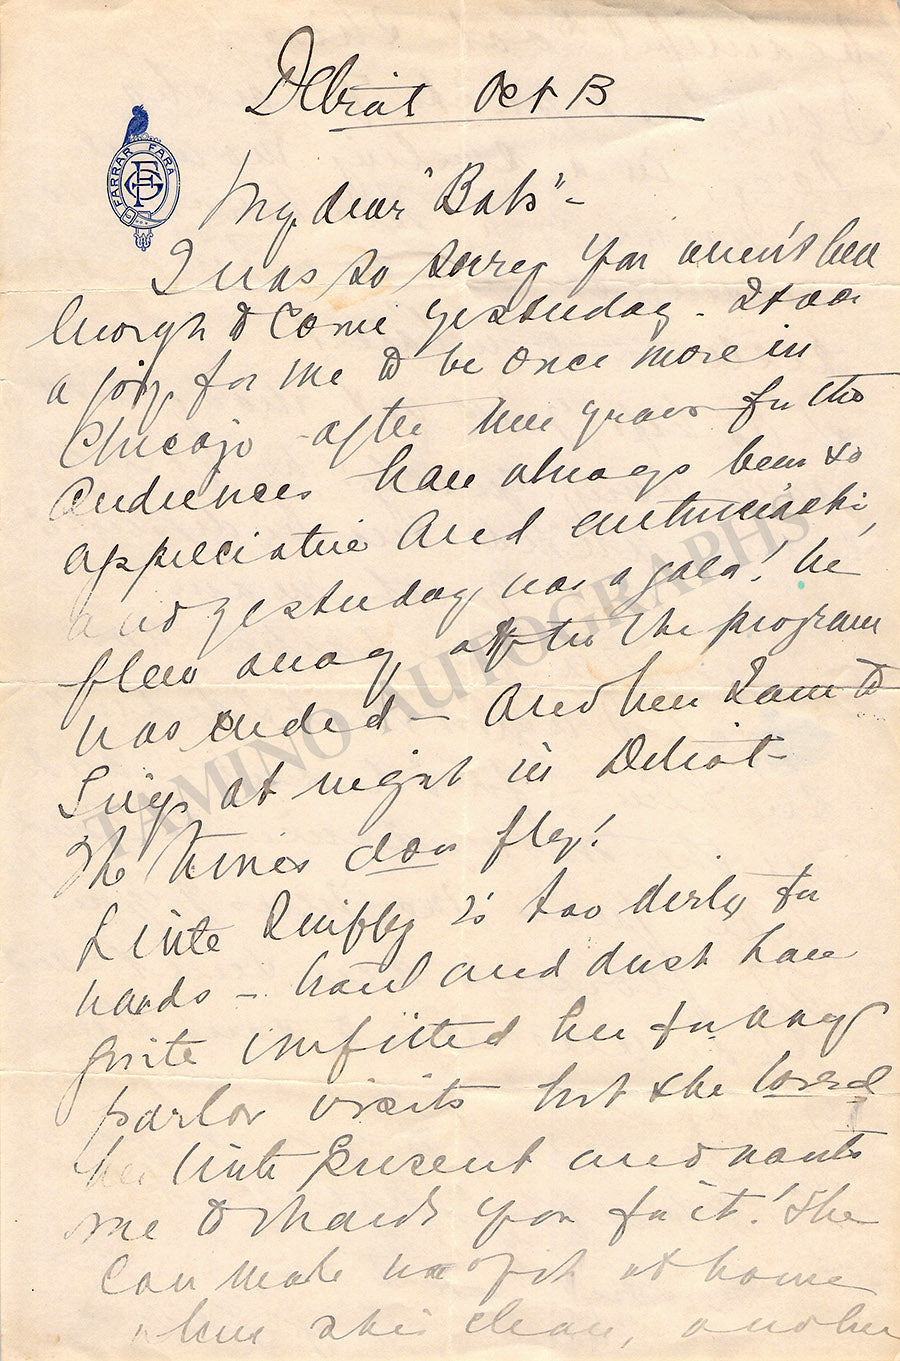 Detroit Oct 13
FARRAR FARA
GF
My dear "Babs" -
I was so sorry you weren't well
enough to come yesterday. It was
a joy for me to be once more in
Chicago after three years for the
audiences have always been so
appreciative and enthusiastic,
and yesterday was a gala! We
flew away after the program
was ended - and here I am to
sing at night in Detroit
The times do fly!
Little is too dirty for
words - and dust have
quite unfitted her for any
parlor visits but she loved
her little present and wants
me to thank you for it! She
can make at home
when she's clean, another
TAMINO AUTOGRAPHS